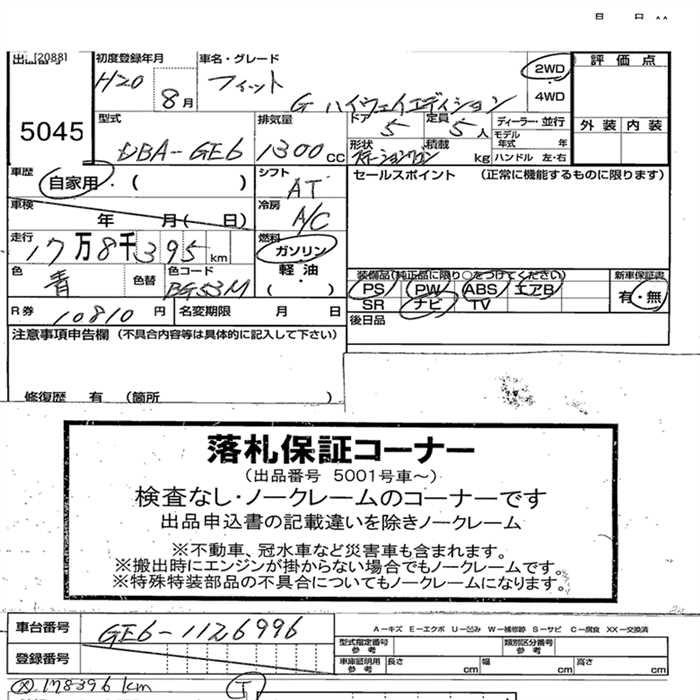 出品番号 [2088]
5045
初度登録年月
H20 8月
車名・グレード
フィット
G ハイウェイエディション
2WD
4WD
評価点
外装 内装
型式
DBA-GE6
排気量
1300cc
ドア
5
定員
5人
形状
ステーションワゴン
積載
kg
ディーラー・並行
モデル年式 年
ハンドル 左・右
車歴
自家用・( )
シフト
AT
セールスポイント (正常に機能するものに限ります)
車検
年 月( 日)
冷房
A/C
走行
17万8千395km
燃料
ガソリン
軽油・
( )
色
青
色替
色コード
BG53M
装備品(純正品に限り○をつけてください)
PS PW ABS エアB
SR ナビ TV
新車保証書
有・無
R券
10810円
名変期限 月 日
後日品
注意事項申告欄 (不具合内容等は具体的に記入して下さい)
修復歴 有 (箇所 )
落札保証コーナー
(出品番号 5001号車~)
検査なし・ノークレームのコーナーです
出品申込書の記載違いを除きノークレーム
※不動車、冠水車など災害車も含まれます。
※搬出時にエンジンが掛からない場合でもノークレームです。
※特殊特装部品の不具合についてもノークレームになります。
車台番号
GE6-1126996
登録番号
A-キズ E-エクボ U-凹み W-補修跡 S-サビ C-腐食 XX-交換済
型式指定番号
参考
類別区分番号
参考
車庫証明用
参考
長さ cm 幅 cm 高さ cm
178396km
G